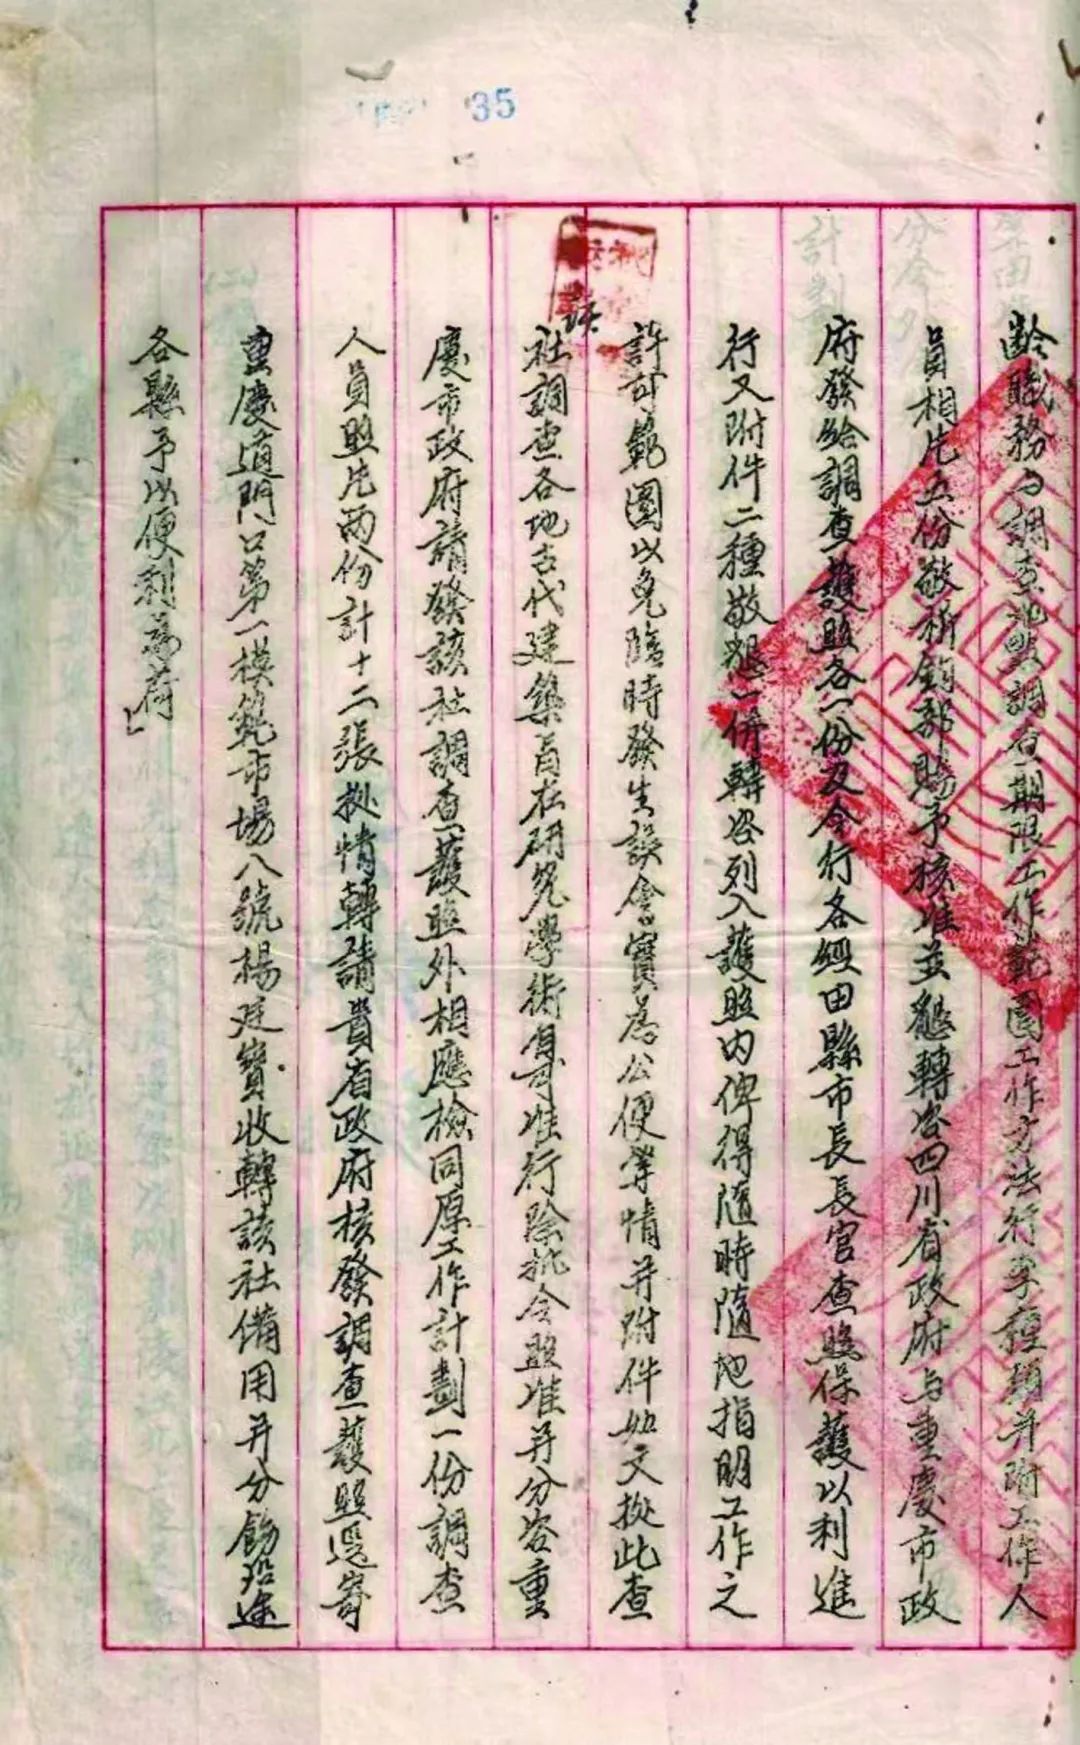 35
齡職務與調查地點調查期限工作範圍工作方法行李種類并附工作人
員相片五份敬祈鈞部賜予核准並懇轉咨四川省政府與重慶市政
府發給調查護照各一份及令行各經田縣市長長官查照保護以利進
行又附件二種敬懇一併轉咨列入護照內俾得隨時隨地指明工作之
許可範圍以免臨時發生誤會實為公便等情并附件如文據此查
社調查各地古代建築旨在研究學術事屬准行除批令照准并分咨重
慶市政府請發該社調查護照外相應檢同原工作計劃一份調查
人員照片兩份計十二張據情轉請貴省政府核發調查護照逕寄
重慶道門口第一模範市場八號楊廷寶收轉該社備用并分飭沿途
各縣予以便利為荷」